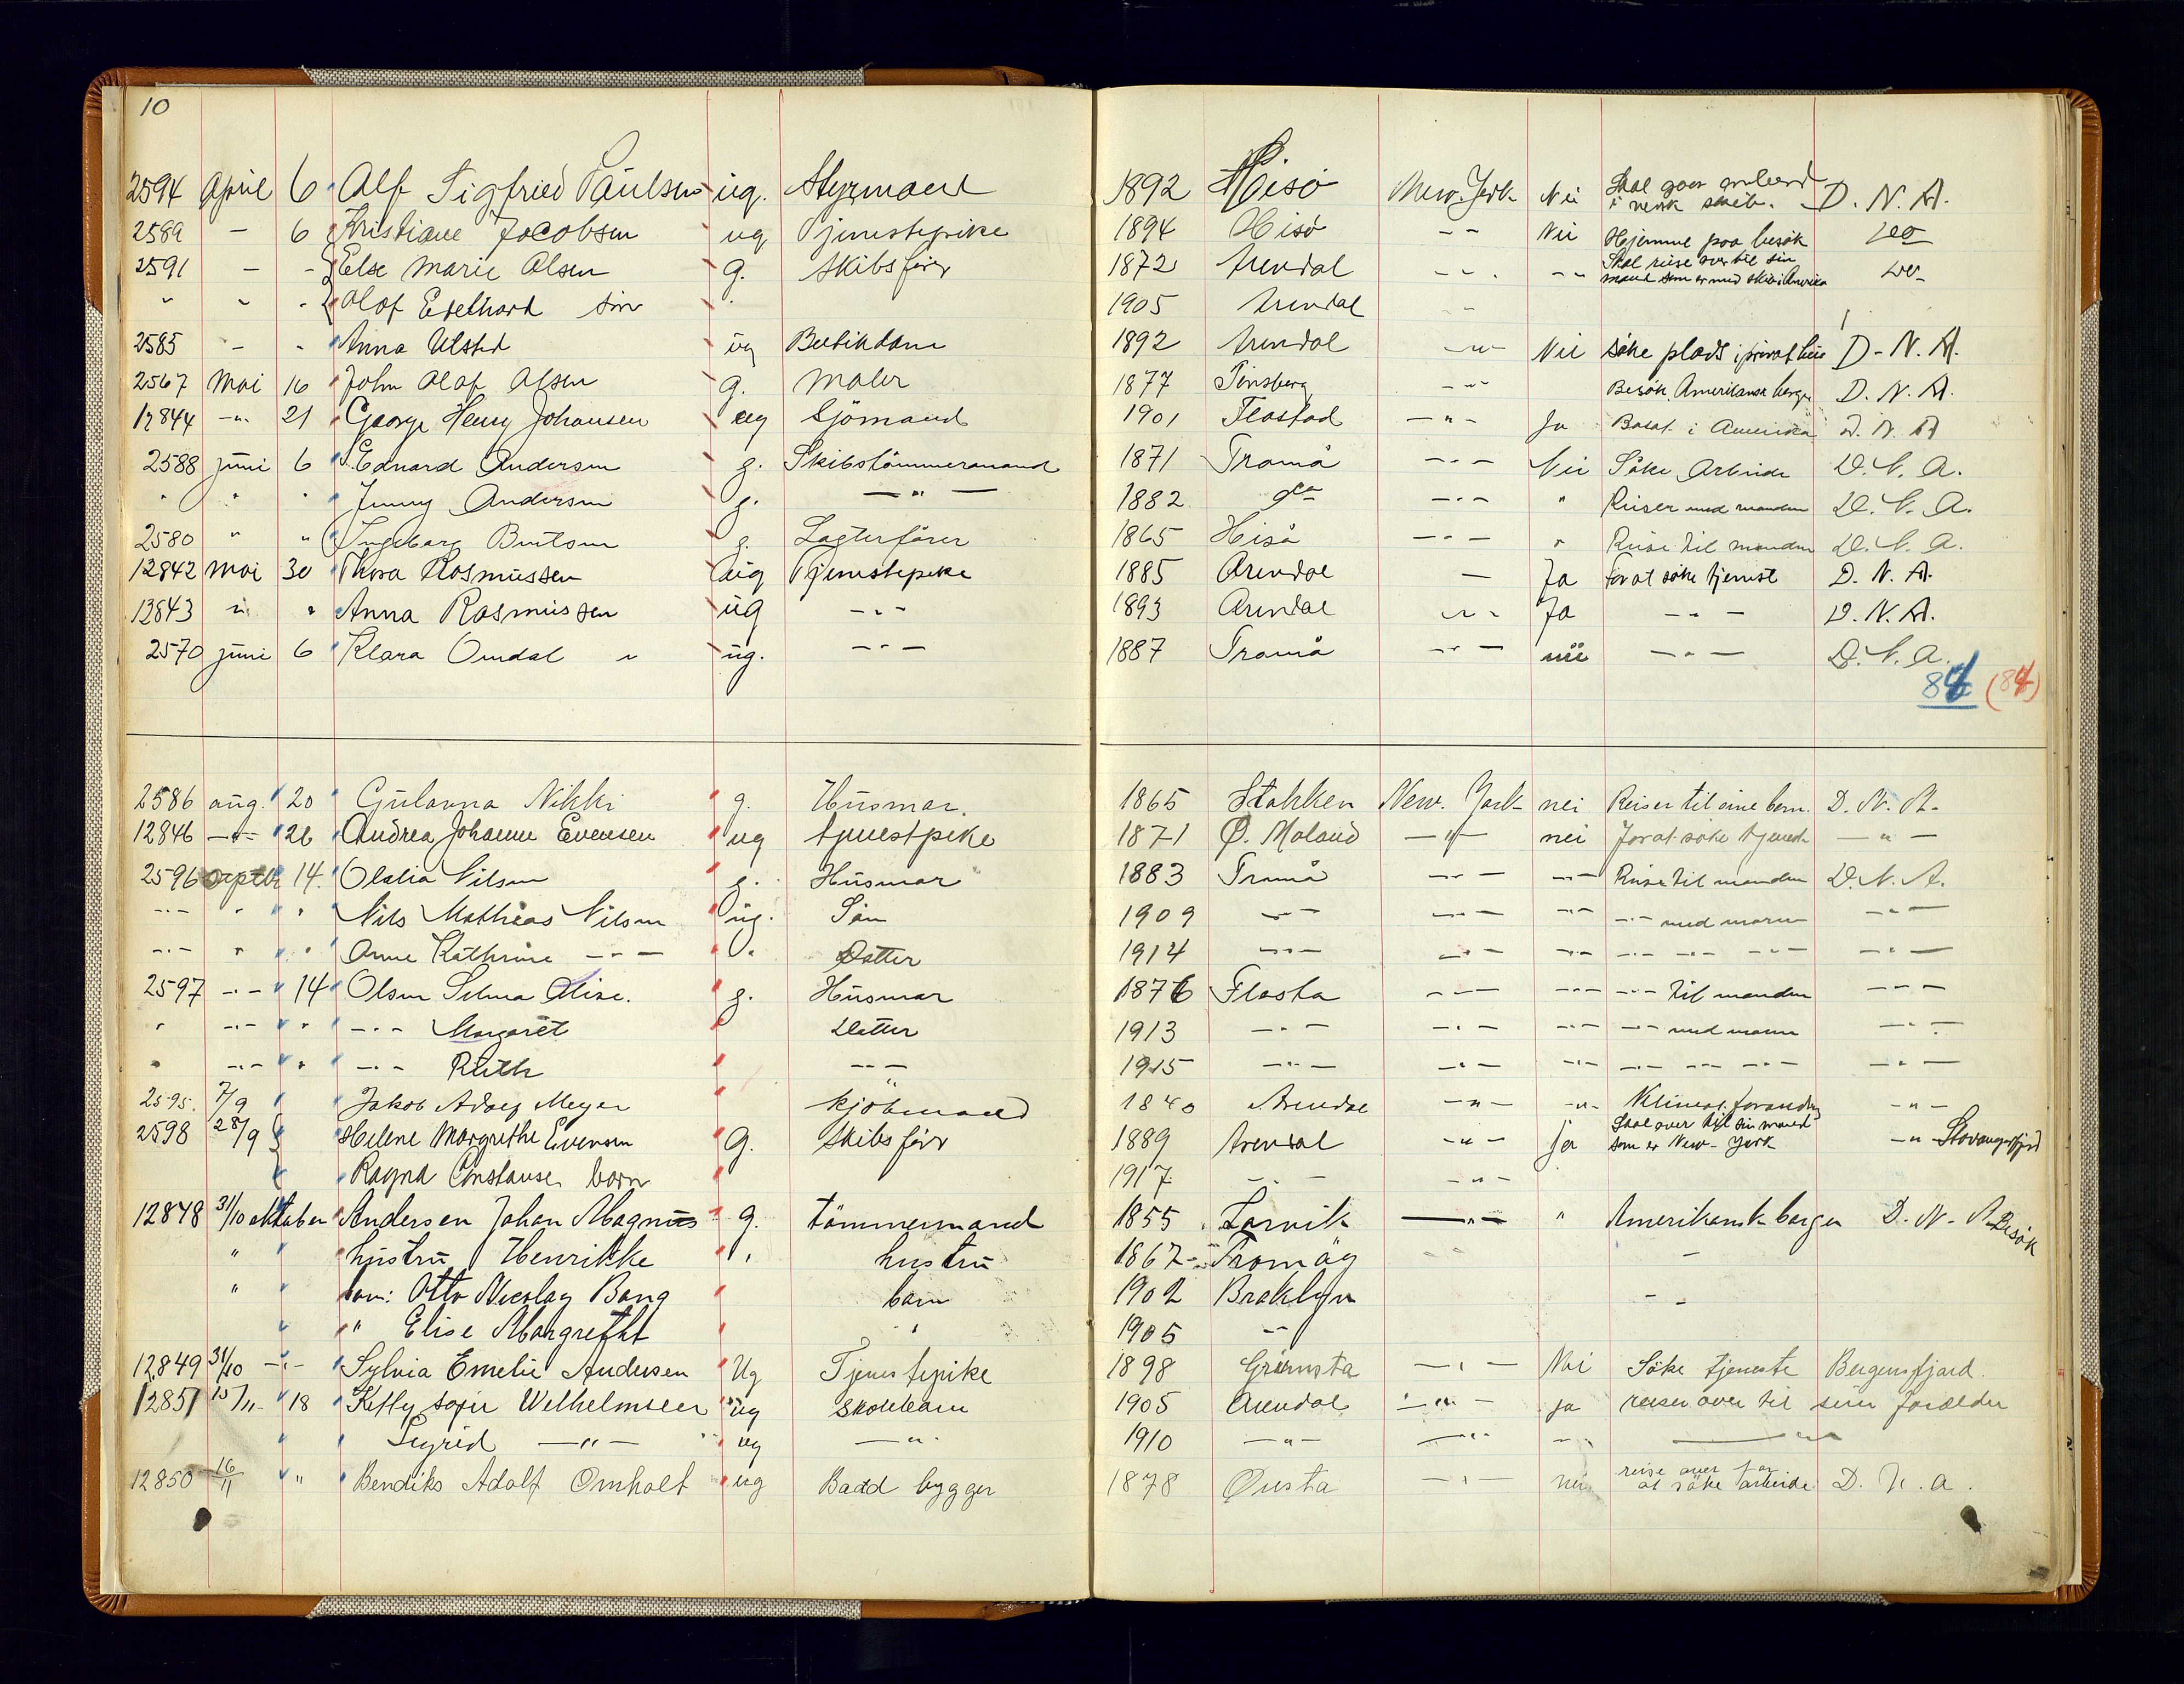 10
2594 April 6 Alf Sigfried Paulsen ug. Styrmand 1892 Hisø New. York Nei Skal gaa ombord i norsk skib. D. N. A.
2589 - 6 Kristiane Jacobsen ug Tjenestepike 1894 Hisø - - Nei Hjemme paa besøk do
2591 - - Else Marie Olsen g. Skibsfører 1872 Arendal - - - - - Skal reise over til sin mand som er med skib i Amerika do
" " " Olof Edelhard søn 1905 Arendal - -
2585 - " Anna Ulsted ug Butikdame 1892 Arendal -"- Nei søke plads i privat hus D. N. A.
2567 Mai 16 John Olaf Olsen g. Maler 1877 Tønsberg -"- Besøk Amerikansk borger D. N. A.
12844 -"- 21 George Henry Johansen ug Sjömand 1901 Flostad -"- Ja Bosat i Amerika D. N. A
2588 juni 6 Edvard Andersen g. Skibstömmermand 1871 Tromö -"- Nei Söke Arbeide D. N. A.
" " " Jenny Andersen g. -"- 1882 do -"- " Reiser med manden D. N. A.
2580 " " Ingeborg Berntsen g. Lagterförer 1865 Hisö -"- " Reise til manden D. N. A.
12842 Mai 30 Thora Rasmussen ug Tjenestepike 1885 Arendal - Ja for at søke tjeneste D. N. A.
12843 " " Anna Rasmussen ug -"- 1893 Arendal -"- Ja -"- D. N. A.
2570 juni 6 Klara Omdal " ug. -"- 1887 Tromö -"- nei -"- D. N. A.
84 (84)
2586 aug. 20 Gulanna Nikki g. Husmor. 1865 Stokken New. York nei Reiser til sine børn. D. N. A.
12846 -"- 26 Andrea Johanne Evensen ug tjenestpike 1871 Ø. Moland -"- nei For at söke tjeneste -"-
2596 septbr 14. Olalia Nilsen g. Husmor 1883 Tromö -"- -"- Reise til manden D. N. A.
-"- " " Nils Mathias Nilsen ug. Sön 1909 -"- -"- -"- -"- med moren -"-
-"- " " Anne Kathrine -"- " Datter 1914 -"- -"- -"- -"- -"- -"- -"-
2597 -"- 14 Olsen Selma Elise. g. Husmor 1876 Flosta -"- -"- -"- til manden -"-
" -"- " -"- Margaret Datter 1913 -"- -"- -"- -"- med moren -"-
" -"- " -"- Ruth -"- 1915 -"- -"- -"- -"- -"- -"- -"-
2595. 7/9 Jakob Adolf Meyer kjöbmand 1840 Arendal -"- -"- Klimat. forandring -"-
2598 28/9 Helene Margrethe Evensen g. Skibsfør 1889 Arendal -"- ja Skal over til sin mand som er New-York -"- Stavangerfjord
Ragna Constanse barn 1917. -"- -"-
12848 31/10 oktober Andersen Johan Magnus g. tömmermand 1855 Larvik -"- " Amerikansk borger D. N. A. Besøk
" hustru Henrikke " hustru 1867 Tromöy -
" barn: Otto Nicolay Bang barn 1902 Broklyn - -
" Elise Margrethe " 1905 -"-
12849 31/10 -"- Sylvia Emelie Andersen Ug Tjenestepike 1898 Grimsta -"- Nei Söke tjeneste Bergensfjord.
12851 15/11- 18 Ketty sofie Wilhelmsen ug skolebarn 1905 Arendal -"- ja reiser over til sine forældre
Sigrid -"- ug -"- 1910 -"- -"- -"- -"-
12850 16/11 " Bendiks Adolf Omholt ug Baad bygger 1878 Øiesta -"- nei reise over for at söke arbeide D. N. a.